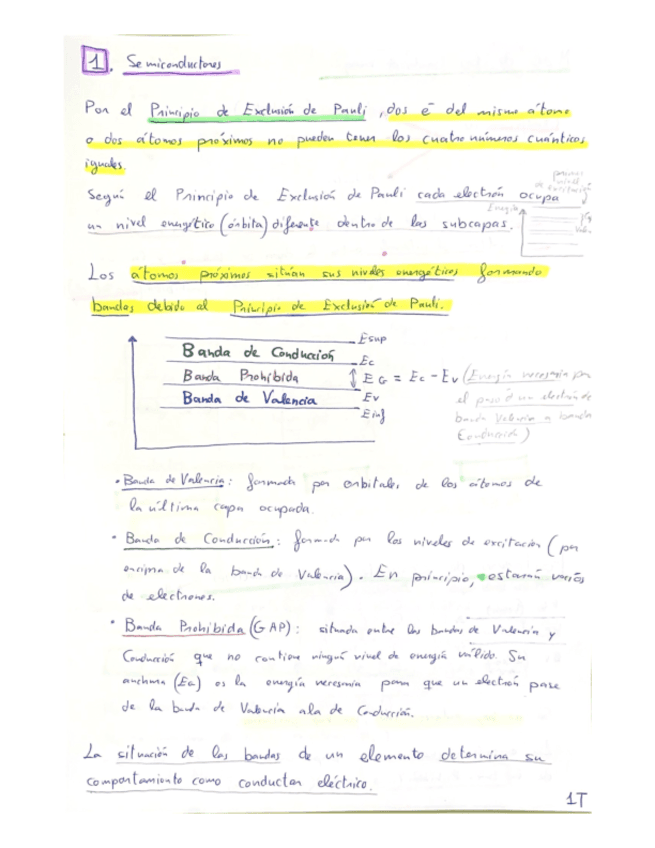 1. Semiconductores
Por el Principio de Exclusión de Pauli, dos e⁻ del mismo átomo
o dos átomos próximos no pueden tener los cuatro números cuánticos
iguales.
Según el Principio de Exclusión de Pauli cada electrón ocupa
un nivel energético (órbita) diferente dentro de las subcapas.
Energía
Los átomos próximos sitúan sus niveles energéticos formando
bandas debido al Principio de Exclusión de Pauli.
Esup
Banda de Conducción
Ec
Banda Prohibida
EG = Ec - Ev (Energía necesaria para
el paso de un electrón de
banda Valencia a banda
Conducción)
Banda de Valencia
Ev
Einf
• Banda de Valencia: formada por orbitales de los átomos de
la última capa ocupada.
• Banda de Conducción: formada por los niveles de excitación (por
encima de la banda de Valencia). En principio, estarán vacíos
de electrones.
• Banda Prohibida (GAP): situada entre las bandas de Valencia y
Conducción que no contiene ningún nivel de energía válido. Su
anchura (EG) es la energía necesaria para que un electrón pase
de la banda de Valencia a la de Conducción.
La situación de las bandas de un elemento determina su
comportamiento como conductor eléctrico.
1T